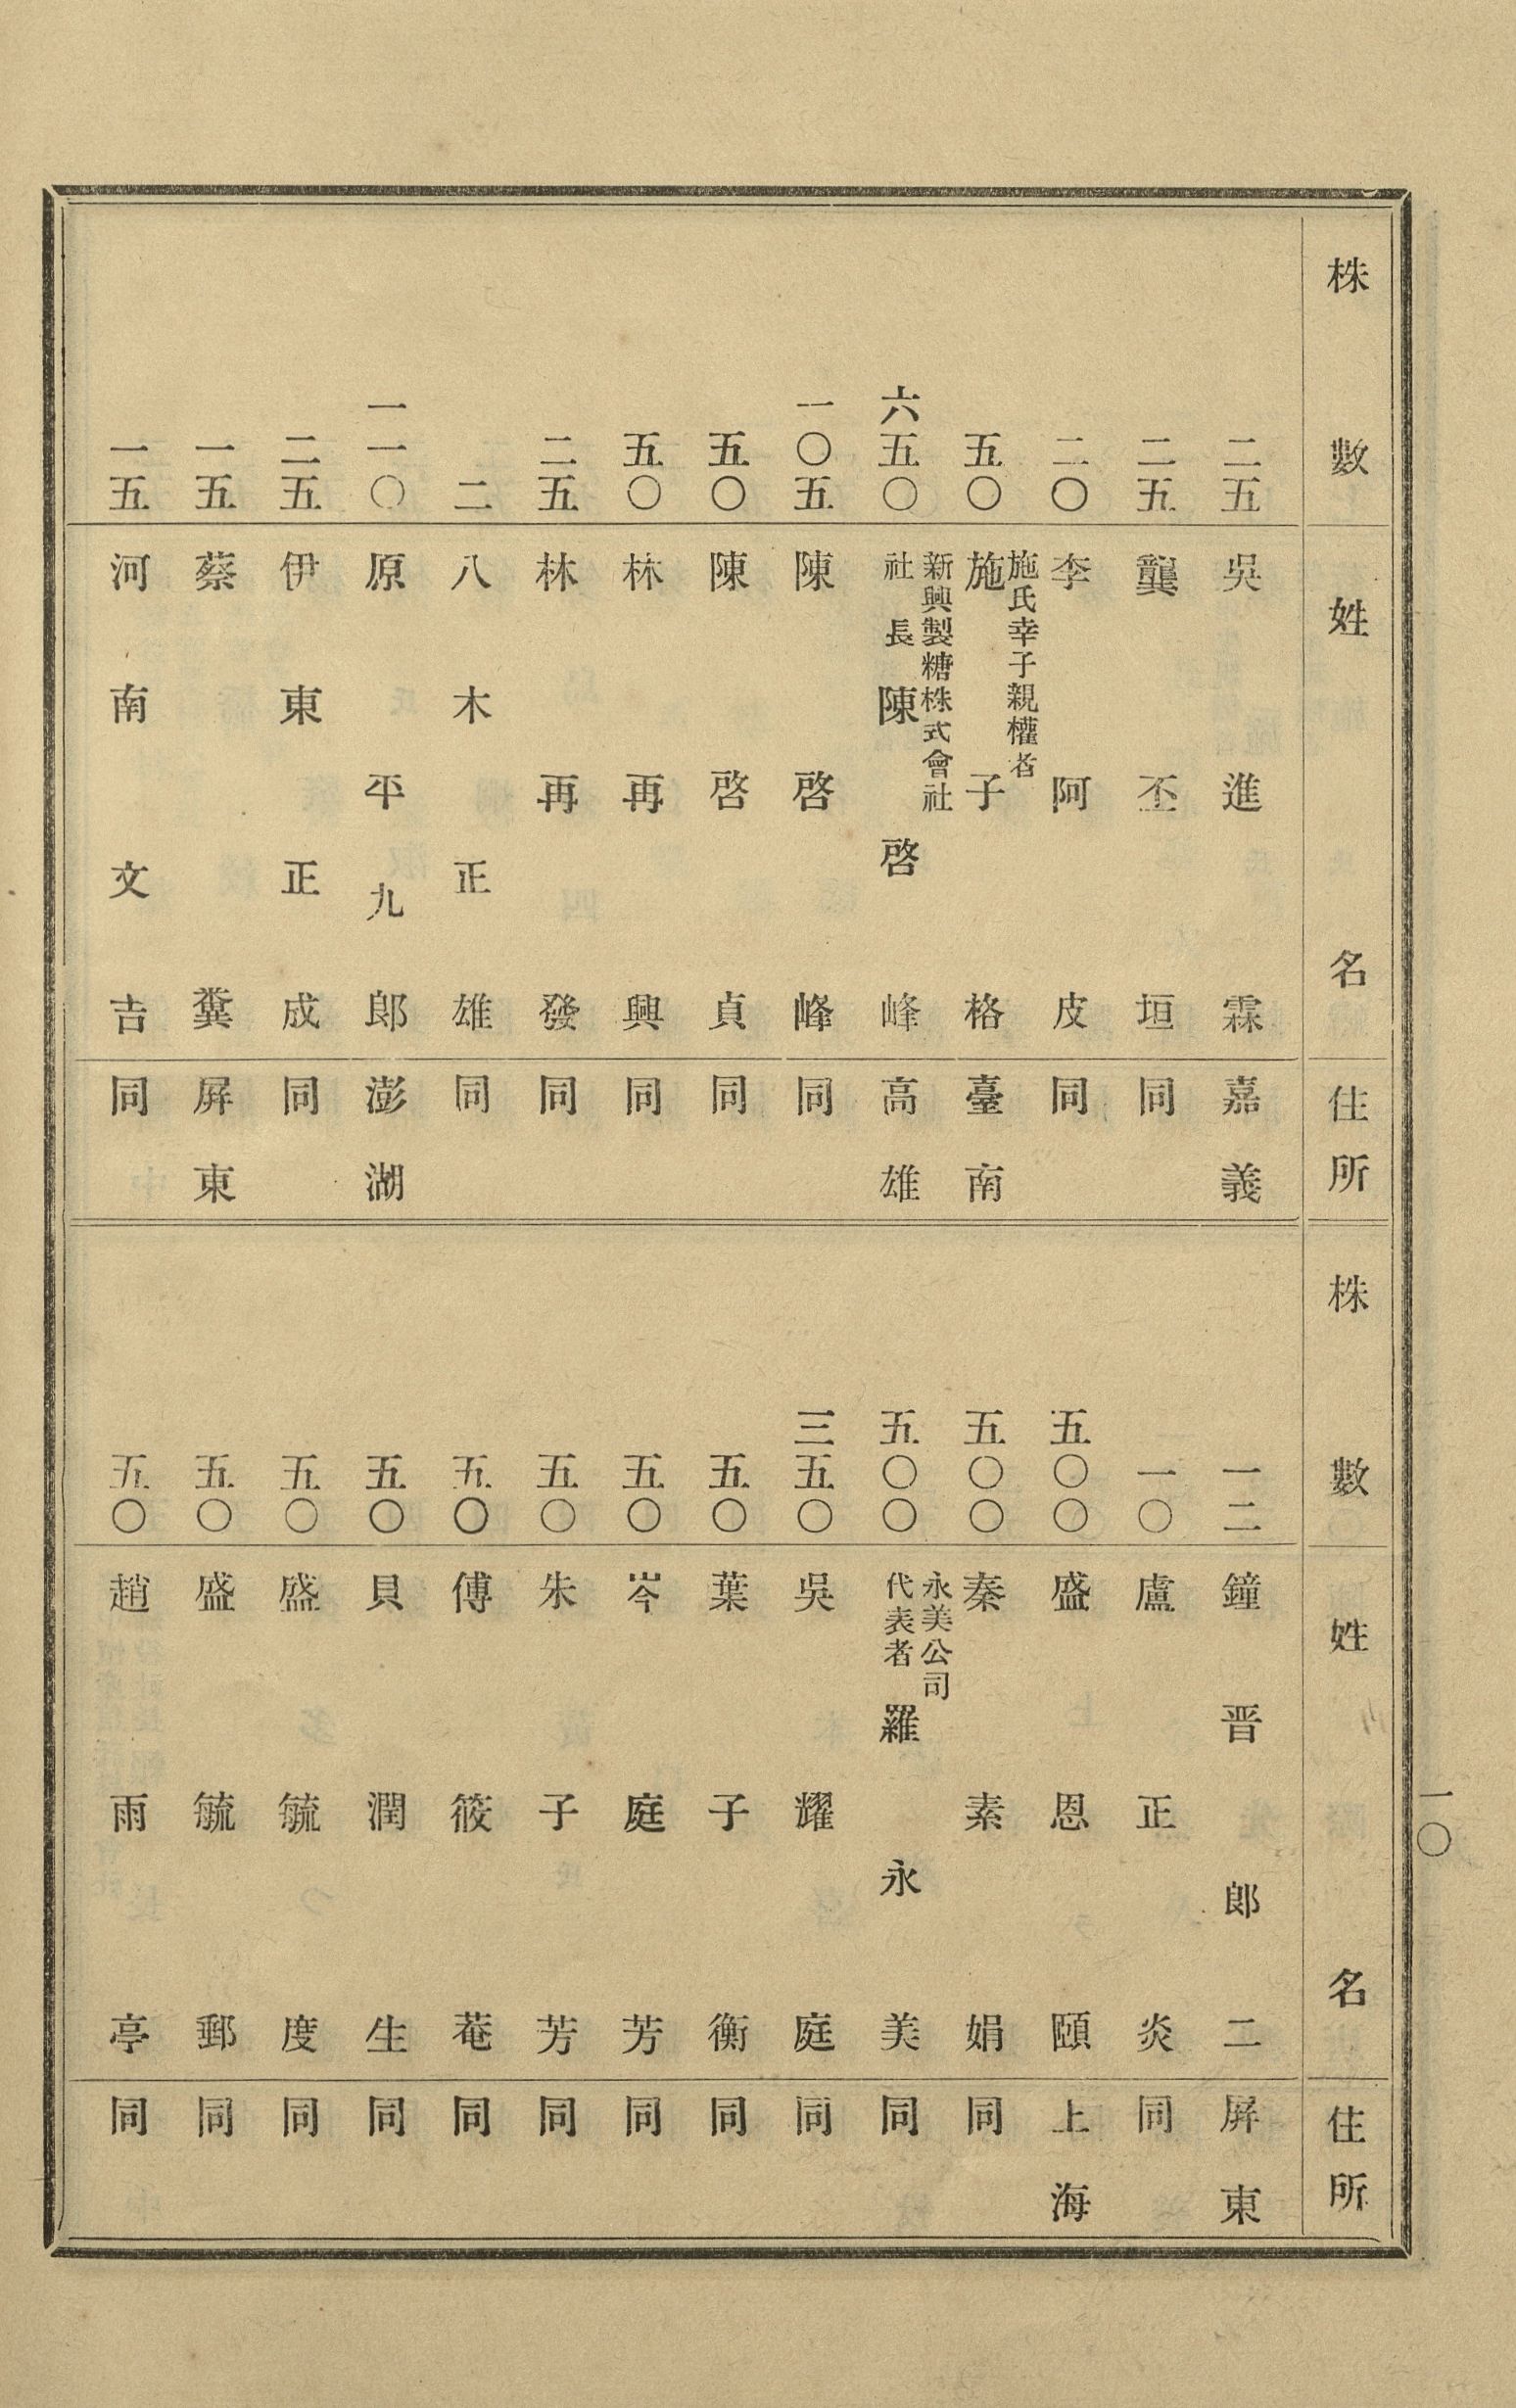 株數 姓名 住所
二五 吳進霖 嘉義
二五 龔丕垣 同
二〇 李阿皮 同
五〇 施氏幸子親權者 施子格 臺南
六五〇 新興製糖株式會社 社長 陳啓峰 高雄
一〇五 陳啓峰 同
五〇 陳啓貞 同
五〇 林再興 同
二五 林再發 同
二 八木正雄 同
一一〇 原平九郎 澎湖
二五 伊東正成 同
一五 蔡糞 屏東
一五 河南文吉 同
株數 姓名 住所
一二 鐘晋郎二 屏東
一〇 盧正炎 同
五〇〇 盛恩頤 上海
五〇〇 秦素娟 同
五〇〇 永美公司 代表者 羅永美 同
三五〇 吳耀庭 同
五〇 葉子衡 同
五〇 岑庭芳 同
五〇 朱子芳 同
五〇 傅筱菴 同
五〇 貝潤生 同
五〇 盛毓度 同
五〇 盛毓郵 同
五〇 趙雨亭 同
一〇